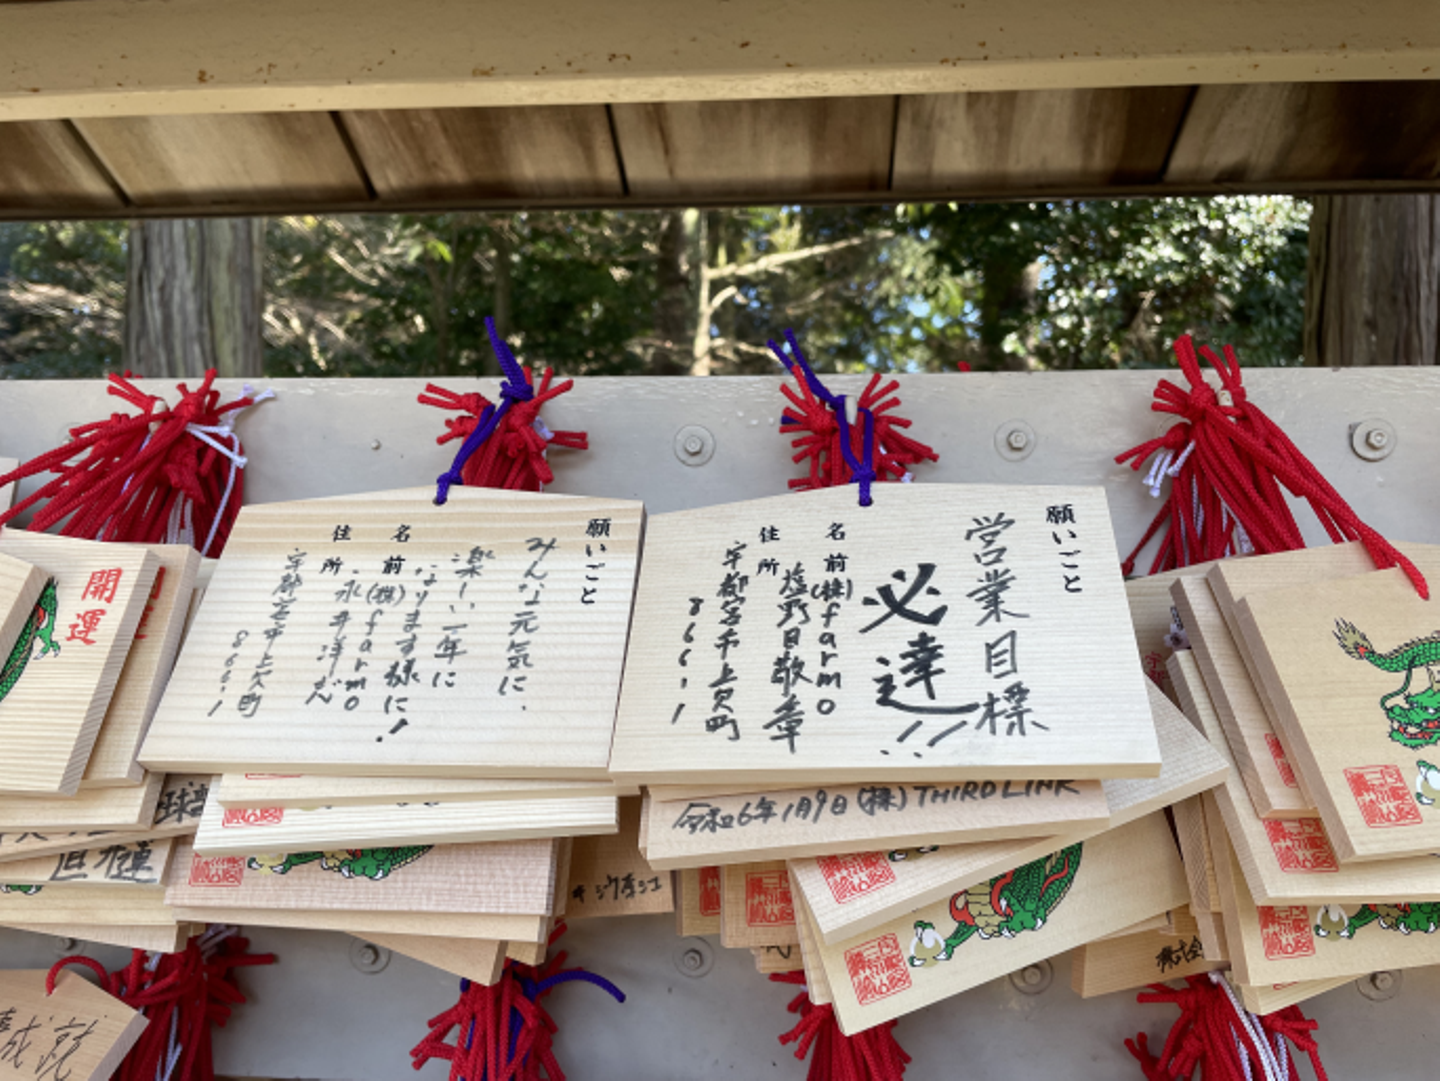 願いごと
営業目標
必達!!
名前
(株)farmo
塩野目敬章
住所
宇都宮市上欠町
866-1
願いごと
みんな元気に、
楽しい一年に
なります様に!
名前
(株)farmo
永井洋志
住所
宇都宮市上欠町
866-1
開運
令和6年1月9日(株)THIRD LINK
株式会
成就